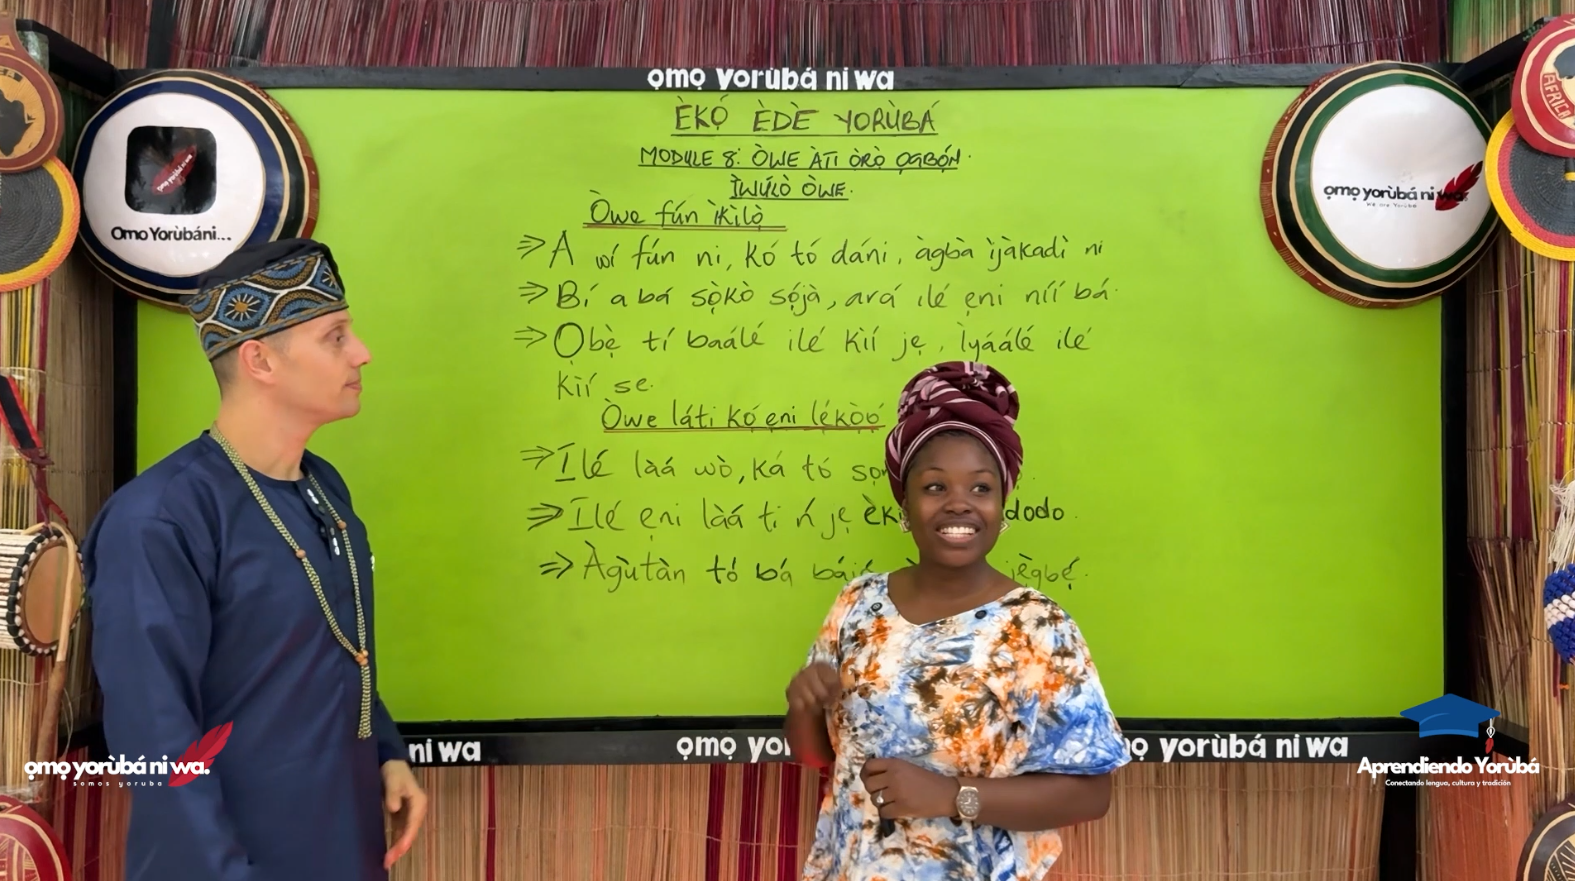 ọmọ yorùbá ni wa
ÈKỌ́ ÈDÈ YORÙBÁ
MODULE 8: ÒWE ÀTI ÒRÒ ỌGBỌ́N.
ÌWÚLÒ ÒWE.
Òwe fún ìkìlọ̀
⇒ A wí fún ni, kó tó dáni, àgbà ìjàkadì ni
⇒ Bí a bá sọ̀kò sọ́jà, ará ilé ẹni níí bá.
⇒ Ọbẹ̀ tí baálé ilé kìí jẹ, Ìyáálé ilé
kìí se.
Òwe láti kọ́ ẹni lẹ́kọ̀ọ́
⇒ Ilé làá wò, ká tó
⇒ Ilé ẹni làá ti ń jẹ dodo.
⇒ Àgùtàn tó bá
Omo Yorùbáni...
ọmọ yorùbá ni wa.
we are Yoruba
AFRICA
ni wa
ọmọ yorùbá ni wa
ọmọ yorùbá ni wa.
somos yoruba
Aprendiendo Yorùbá
Conectando lengua, cultura y tradición